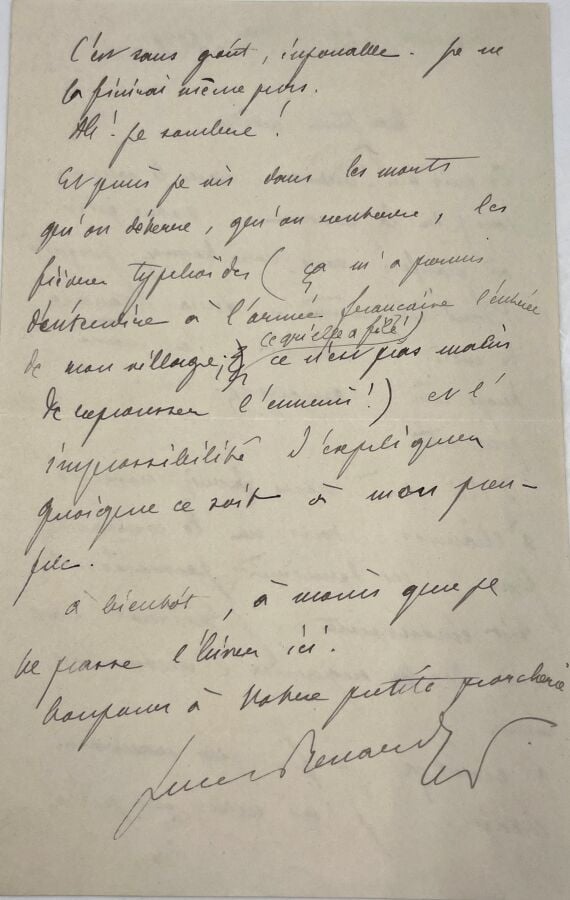 C'est sans goût, injouable. Je ne
la finirai même pas.
Ah! je sombre!
Et puis je vis dans les morts
qu'on déterre, qu'on enterre, les
fièvres typhoïdes (ça m'a permis
d'interdire à l'armée française l'entrée
de mon village;
ce qu'elle a filé!
ce n'est pas malin
de repousser l'ennemi!) et l'
impossibilité d'expliquer
quoique ce soit à mon peu-
ple.
à bientôt, à moins que je
ne passe l'hiver ici.
bonjour à votre petite porcherie
Jules Renard